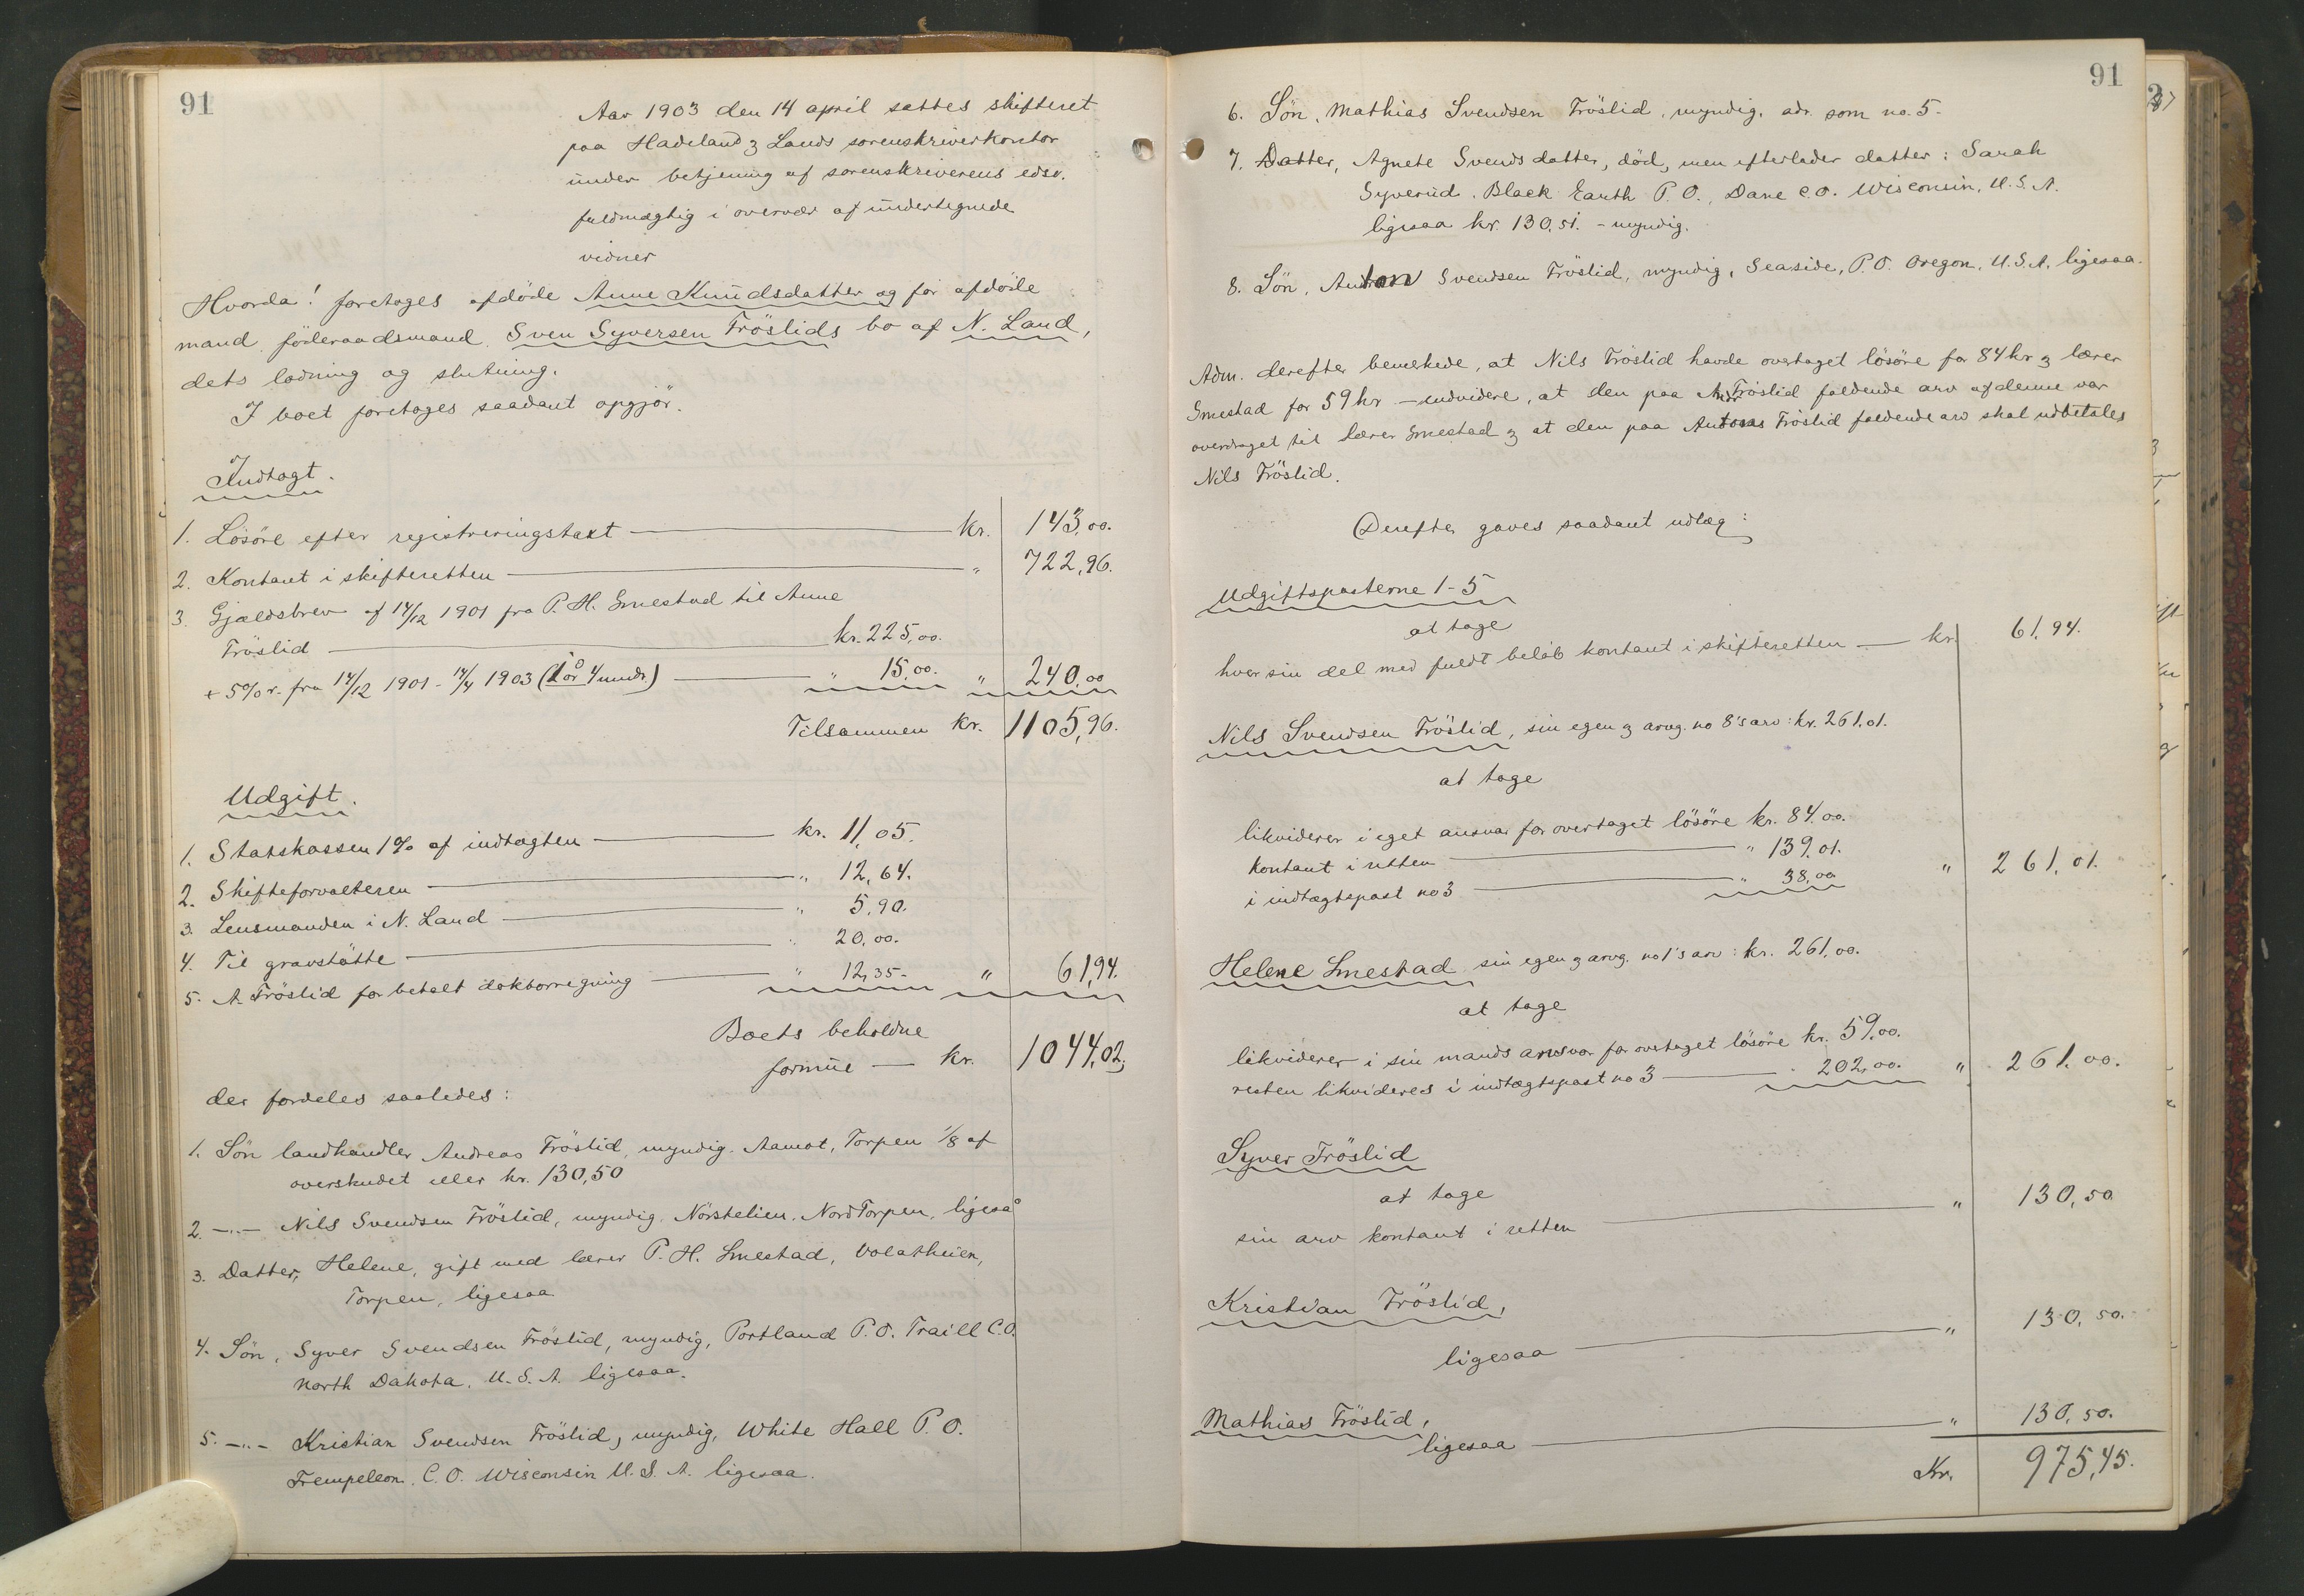 91
Aar 1903 den 14 april sattes skifteret
paa Hadeland & Lands sorenskriverkontor
under betjening af sorenskriverens edsv.
fuldmægtig i overvær af undertegnede
vidner
Hvorda! foretoges afdöde Anne Knudsdatter og før afdöde
mand föderaadsmand Sven Syversen Fröslids bo af N. Land,
dets lodning og slutning.
I boet foretoges saadant opgjör.
Indtægt.
1. Lösöre efter registreringstaxt — kr. 143,00.
2. Kontant i skifteretten — " 722,96.
3. Gjældsbrev af 14/12 1901 fra P. H. Smestad til Anne
Fröslid — kr. 225,00.
+ 5% r. fra 14/12 1901 - 14/4 1903 (1 år 4 mndr.) — " 15,00. " 240,00
Tilsammen kr. 1105,96.
Udgift.
1. Statskassen 1% af indtægten — kr. 11,05.
2. Skifteforvalteren — " 12,64.
3. Lensmanden i N. Land — " 5,90.
4. Til gravstötte — " 20,00.
5. A. Fröslid for betalt doktorregning — " 12,35- " 61,94.
Boets beholdne
formue — kr. 1044,02;
der fordeles saaledes:
1. Sön landhandler Andreas Fröslid, myndig. Aamot, Torpen 1/8 af
overskudet eller kr. 130,50
2. -"- Nils Svendsen Fröslid, myndig, Nörstelien, Nord Torpen, ligesaå
3. Datter, Helene, gift med lærer P. H. Smestad,
Torpen, ligesaa
4. Sön, Syver Svendsen Fröslid, myndig, Portland P.O. Traill C.O.
North Dakota. U.S.A. ligesaa.
5. -"- Kristian Svendsen Fröslid, myndig, White Hall P.O.
Trempeleon. C.O. Wisconsin U.S.A. ligesaa.
91
6. Sön, Mathias Svendsen Fröslid, myndig, adr. som no. 5.
7. Datter, Agnete Svendsdatter, död, men efterlader datter: Sarah
Syverud. Black Earth P.O., Dane C.O. Wisconsin, U.S.A.
ligesaa kr. 130,51. - myndig.
8. Sön, Anton Svendsen Fröslid, myndig, Seaside, P.O. Oregon, U.S.A, ligesaa.
Adm. derefter bemerkede, at Nils Fröslid havde overtaget lösöre for 84 kr & lærer
Smestad for 59 kr — endvidere, at den paa Andr. Fröslid faldende arv af denne var
overdraget til lærer Smestad & at den paa Antons Fröslid faldende arv skal udbetales
Nils Fröslid.
Derefter gaves saadant udlæg:
Udgiftsposterne 1-5
at tage
hver sin del med fuldt belöb kontant i skifteretten — kr. 61,94.
Nils Svendsen Fröslid, sin egen & arvg. no 8's arv: kr. 261,01.
at tage
likviderer i eget ansvar for overtaget lösöre kr. 84,00.
kontant i retten — " 139,01.
i indtægtspost no 3 — " 38,00 " 261,01.
Helene Smestad sin egen & arvg. no 1's arv: kr. 261,00.
at tage
likviderer i sin mands ansvar for overtaget lösöre kr. 59,00.
resten likvideres i indtægtspost no 3 — " 202,00. " 261,00.
Syver Fröslid
at tage
sin arv kontant i retten — " 130,50
Kristian Fröslid,
ligesaa — " 130,50.
Mathias Fröslid,
ligesaa — " 130,50.
Kr. 975,45.